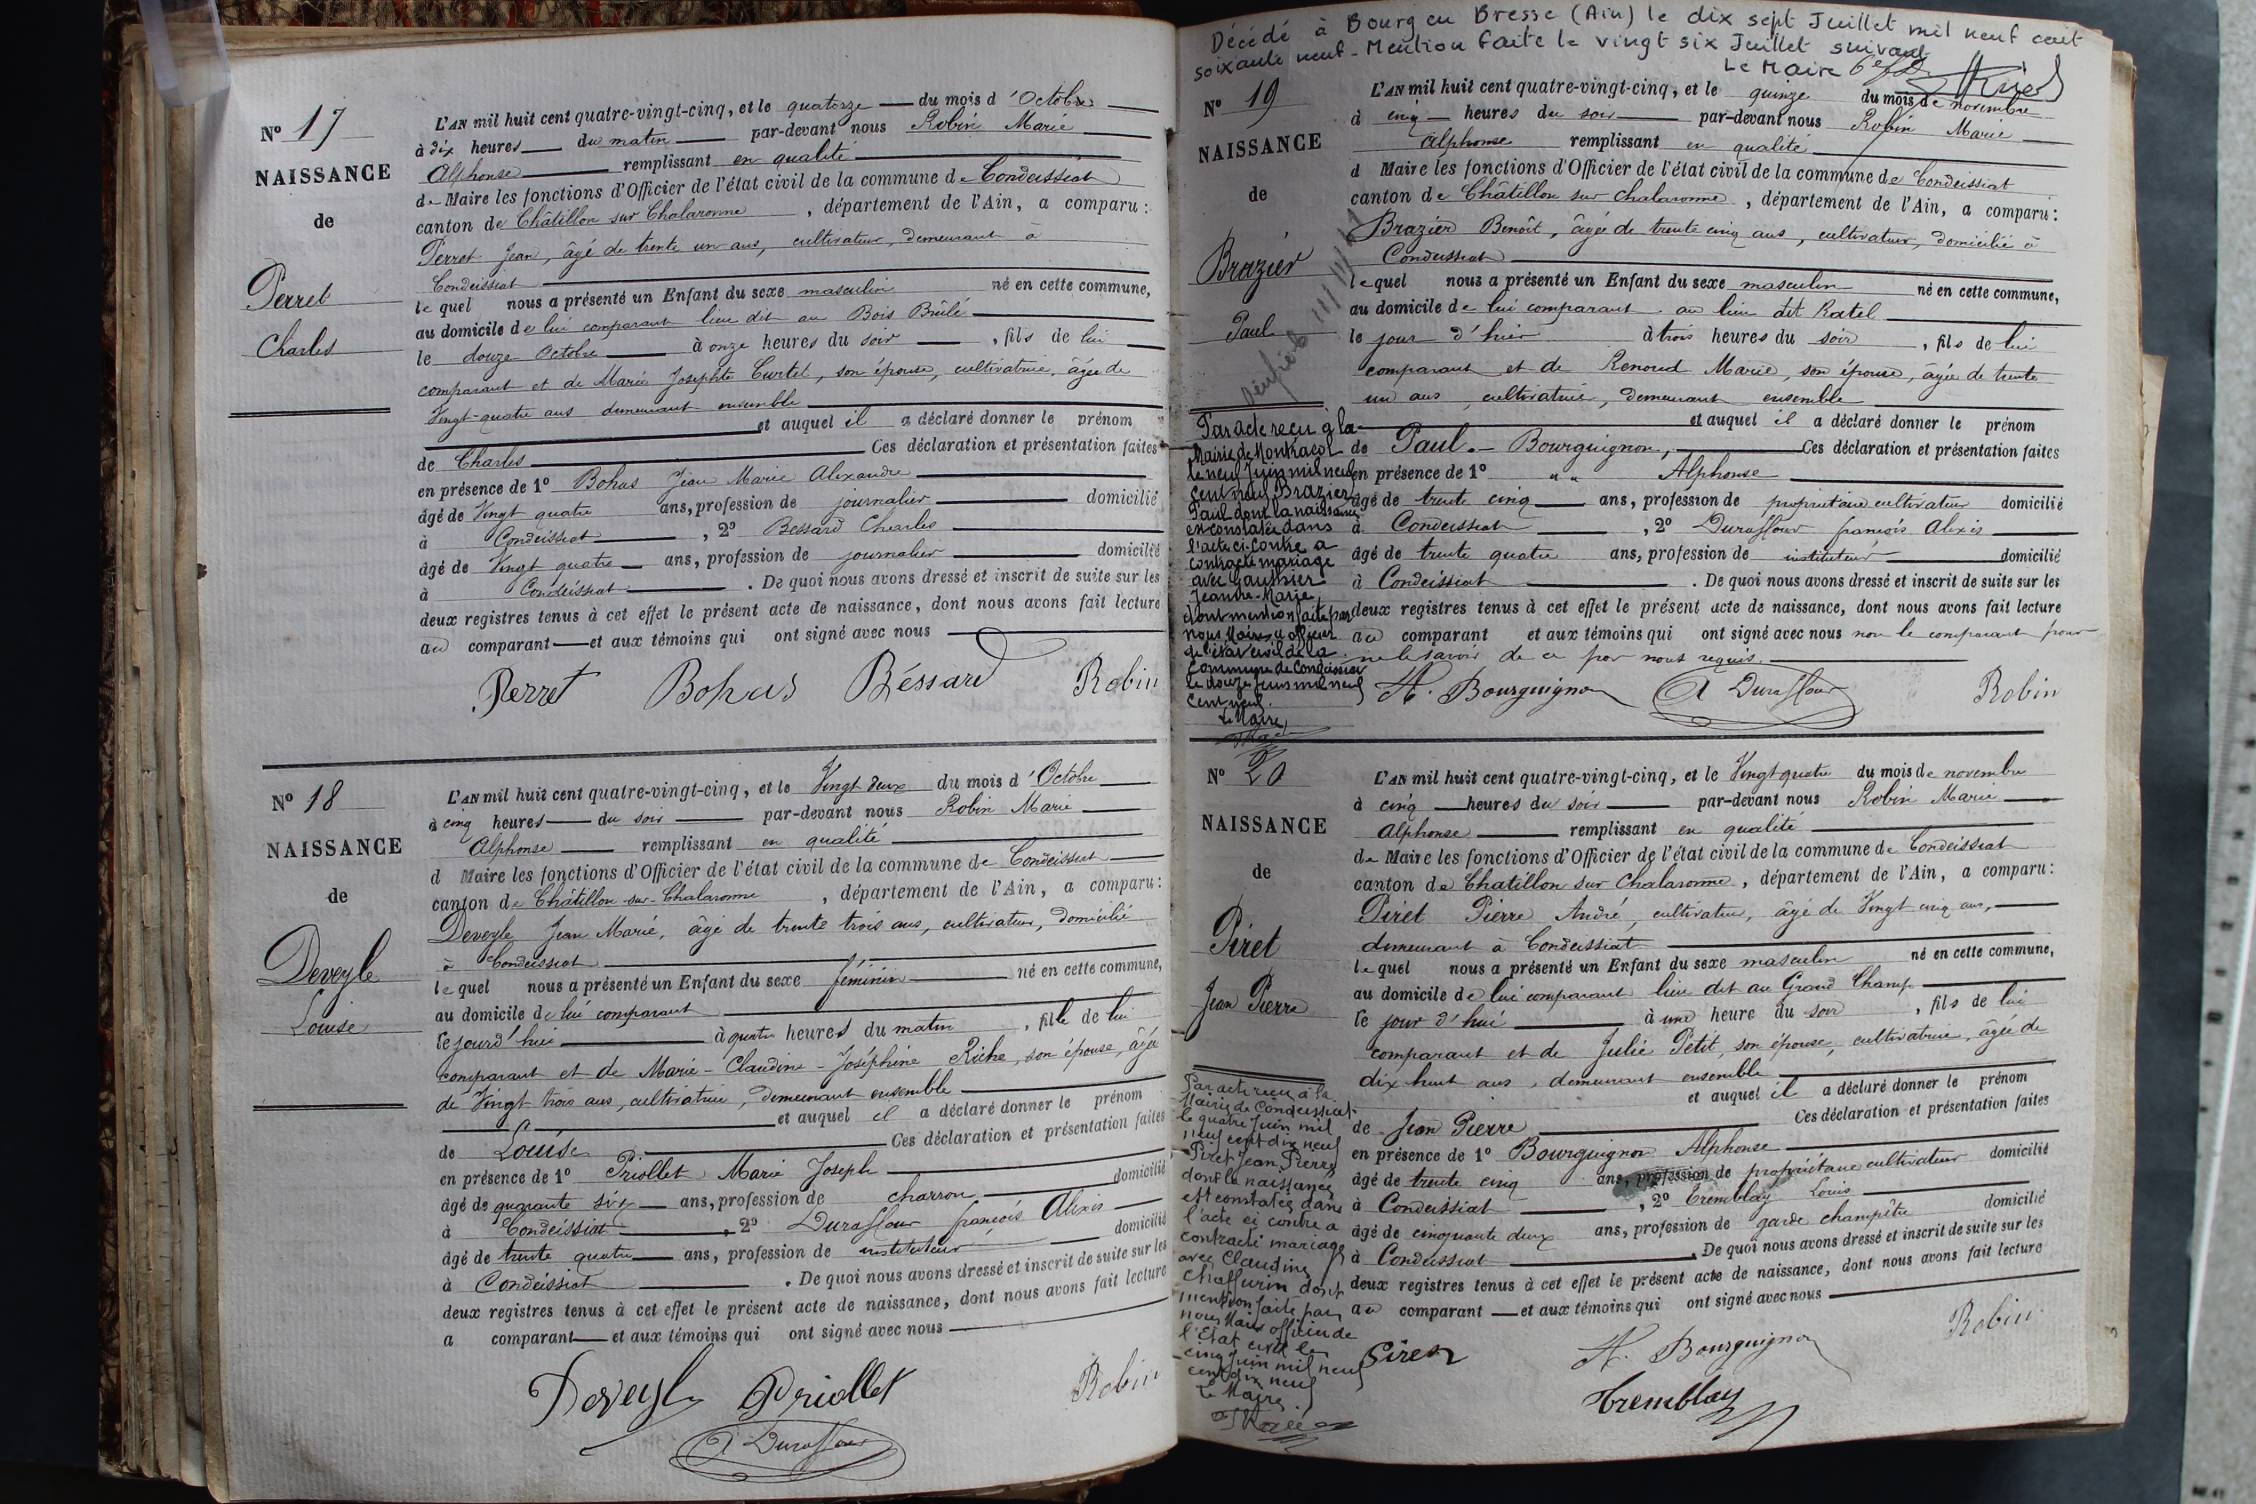 N° 17
NAISSANCE
de
Perret
Charles
L'AN mil huit cent quatre-vingt-cinq, et le quatorze du mois d'Octobre
à dix heures du matin par-devant nous Robin Marie
Alphonse remplissant en qualité
de Maire les fonctions d'Officier de l'état civil de la commune de Condeissiat
canton de Châtillon sur Chalaronne, département de l'Ain, a comparu:
Perret Jean, âgé de trente un ans, cultivateur, demeurant à
Condeissiat
lequel nous a présenté un Enfant du sexe masculin né en cette commune,
au domicile de lui comparant lieu dit au Bois Brûlé
le douze Octobre à onze heures du soir, fils de lui
comparant et de Marie Josephte Curtet, son épouse, cultivatrice, âgée de
Vingt-quatre ans demeurant ensemble
et auquel il a déclaré donner le prénom
de Charles Ces déclaration et présentation faites
en présence de 1° Bohas Jean Marie Alexandre
âgé de Vingt quatre ans, profession de journalier domicilié
à Condeissiat, 2° Bessard Charles
âgé de Vingt quatre ans, profession de journalier domicilié
à Condeissiat. De quoi nous avons dressé et inscrit de suite sur les
deux registres tenus à cet effet le présent acte de naissance, dont nous avons fait lecture
au comparant et aux témoins qui ont signé avec nous
Perret Bohas Béssard Robin
N° 18
NAISSANCE
de
Deveyle
Louise
L'AN mil huit cent quatre-vingt-cinq, et le Vingt deux du mois d'Octobre
à cinq heures du soir par-devant nous Robin Marie
Alphonse remplissant en qualité
d Maire les fonctions d'Officier de l'état civil de la commune de Condeissiat
canton de Châtillon-sur-Chalaronne, département de l'Ain, a comparu:
Deveyle Jean Marie, âgé de trente trois ans, cultivateur, domicilié
à Condeissiat
lequel nous a présenté un Enfant du sexe féminin né en cette commune,
au domicile de lui comparant
le jourd'hui à quatre heures du matin, fille de lui
comparant et de Marie-Claudine-Joséphine Riche, son épouse, âgée
de Vingt trois ans, cultivatrice, demeurant ensemble
et auquel il a déclaré donner le prénom
de Louise Ces déclaration et présentation faites
en présence de 1° Priollet Marie Joseph
âgé de quarante six ans, profession de charron domicilié
à Condeissiat, 2° Duraffour françois Alexis
âgé de trente quatre ans, profession de instituteur domicilié
à Condeissiat. De quoi nous avons dressé et inscrit de suite sur les
deux registres tenus à cet effet le présent acte de naissance, dont nous avons fait lecture
a comparant et aux témoins qui ont signé avec nous
Deveyle Priollet Robin
A Duraffour
Décédé à Bourg en Bresse (Ain) le dix sept Juillet mil neuf cent
soixante neuf - Mention faite le vingt six Juillet suivant
Le Maire
N° 19
NAISSANCE
de
Brazier
Paul
L'AN mil huit cent quatre-vingt-cinq, et le quinze du mois de novembre
à cinq heures du soir par-devant nous Robin Marie
Alphonse remplissant en qualité
d Maire les fonctions d'Officier de l'état civil de la commune de Condeissiat
canton de Châtillon sur Chalaronne, département de l'Ain, a comparu:
Brazier Benoît, âgé de trente cinq ans, cultivateur, domicilié à
Condeissiat
lequel nous a présenté un Enfant du sexe masculin né en cette commune,
au domicile de lui comparant au lieu dit Ratel
le jour d'hier à trois heures du soir, fils de lui
comparant et de Renoud Marie, son épouse, âgée de trente
un ans, cultivatrice, demeurant ensemble
et auquel il a déclaré donner le prénom
de Paul. - Bourguignon, Ces déclaration et présentation faites
en présence de 1° " " Alphonse
âgé de trente cinq ans, profession de propriétaire cultivateur domicilié
à Condeissiat, 2° Duraffour françois Alexis
âgé de trente quatre ans, profession de instituteur domicilié
à Condeissiat. De quoi nous avons dressé et inscrit de suite sur les
deux registres tenus à cet effet le présent acte de naissance, dont nous avons fait lecture
au comparant et aux témoins qui ont signé avec nous non le comparant pour
ne le savoir de ce par nous requis.
A. Bourguignon A Duraffour Robin
Par acte reçu à la
Mairie de Montracol
le neuf Juin mil neuf
cent neuf Brazier
Paul dont la naissance
est constatée dans
l'acte ci-contre a
contracté mariage
avec Gauthier
Jeanne-Marie,
dont mention faite par
nous Maire officier
de l'état civil de la
commune de Condeissiat
le douze Juin mil neuf
cent neuf.
Le Maire,
N° 20
NAISSANCE
de
Piret
Jean Pierre
L'AN mil huit cent quatre-vingt-cinq, et le Vingt quatre du mois de novembre
à cinq heures du soir par-devant nous Robin Marie
Alphonse remplissant en qualité
de Maire les fonctions d'Officier de l'état civil de la commune de Condeissiat
canton de Châtillon sur Chalaronne, département de l'Ain, a comparu:
Piret Pierre André, cultivateur, âgé de Vingt cinq ans,
demeurant à Condeissiat
lequel nous a présenté un Enfant du sexe masculin né en cette commune,
au domicile de lui comparant lieu dit au Grand Champ
le jour d'hui à une heure du soir, fils de lui
comparant et de Julie Petit, son épouse, cultivatrice, âgée de
dix huit ans, demeurant ensemble
et auquel il a déclaré donner le prénom
de Jean Pierre Ces déclaration et présentation faites
en présence de 1° Bourguignon Alphonse
âgé de trente cinq ans, profession de propriétaire cultivateur domicilié
à Condeissiat, 2° Tremblay Louis
âgé de cinquante deux ans, profession de garde champêtre domicilié
à Condeissiat. De quoi nous avons dressé et inscrit de suite sur les
deux registres tenus à cet effet le présent acte de naissance, dont nous avons fait lecture
au comparant et aux témoins qui ont signé avec nous
Piret A. Bourguignon Robin
Tremblay
Par acte reçu à la
Mairie de Condeissiat
le quatre Juin mil
neuf cent dix neuf
Piret Jean Pierre
dont la naissance
est constatée dans
l'acte ci contre a
contracté mariage
avec Claudine
Chaffurin dont
mention faite par
nous Maire officier de
l'Etat civil le
cinq Juin mil neuf
cent dix neuf
Le Maire